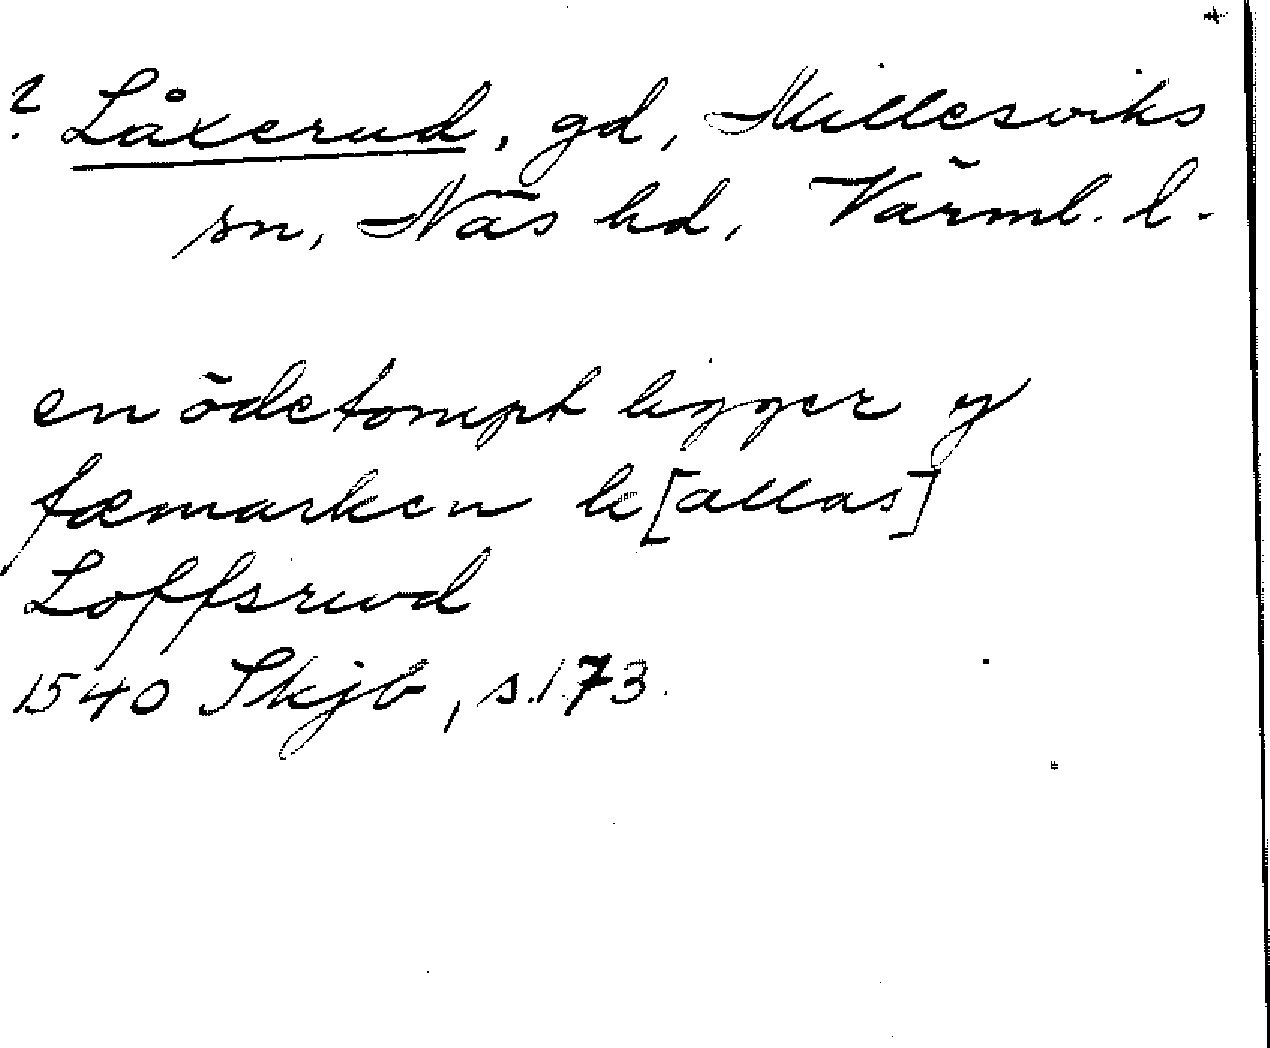 ? Låxerud, gd, Millesviks
sn, Näs hd, Värml. l.
en ödetompt ligger y
fæmarken k[allas]
Loffsrwd
1540 Skjb, s. 173.